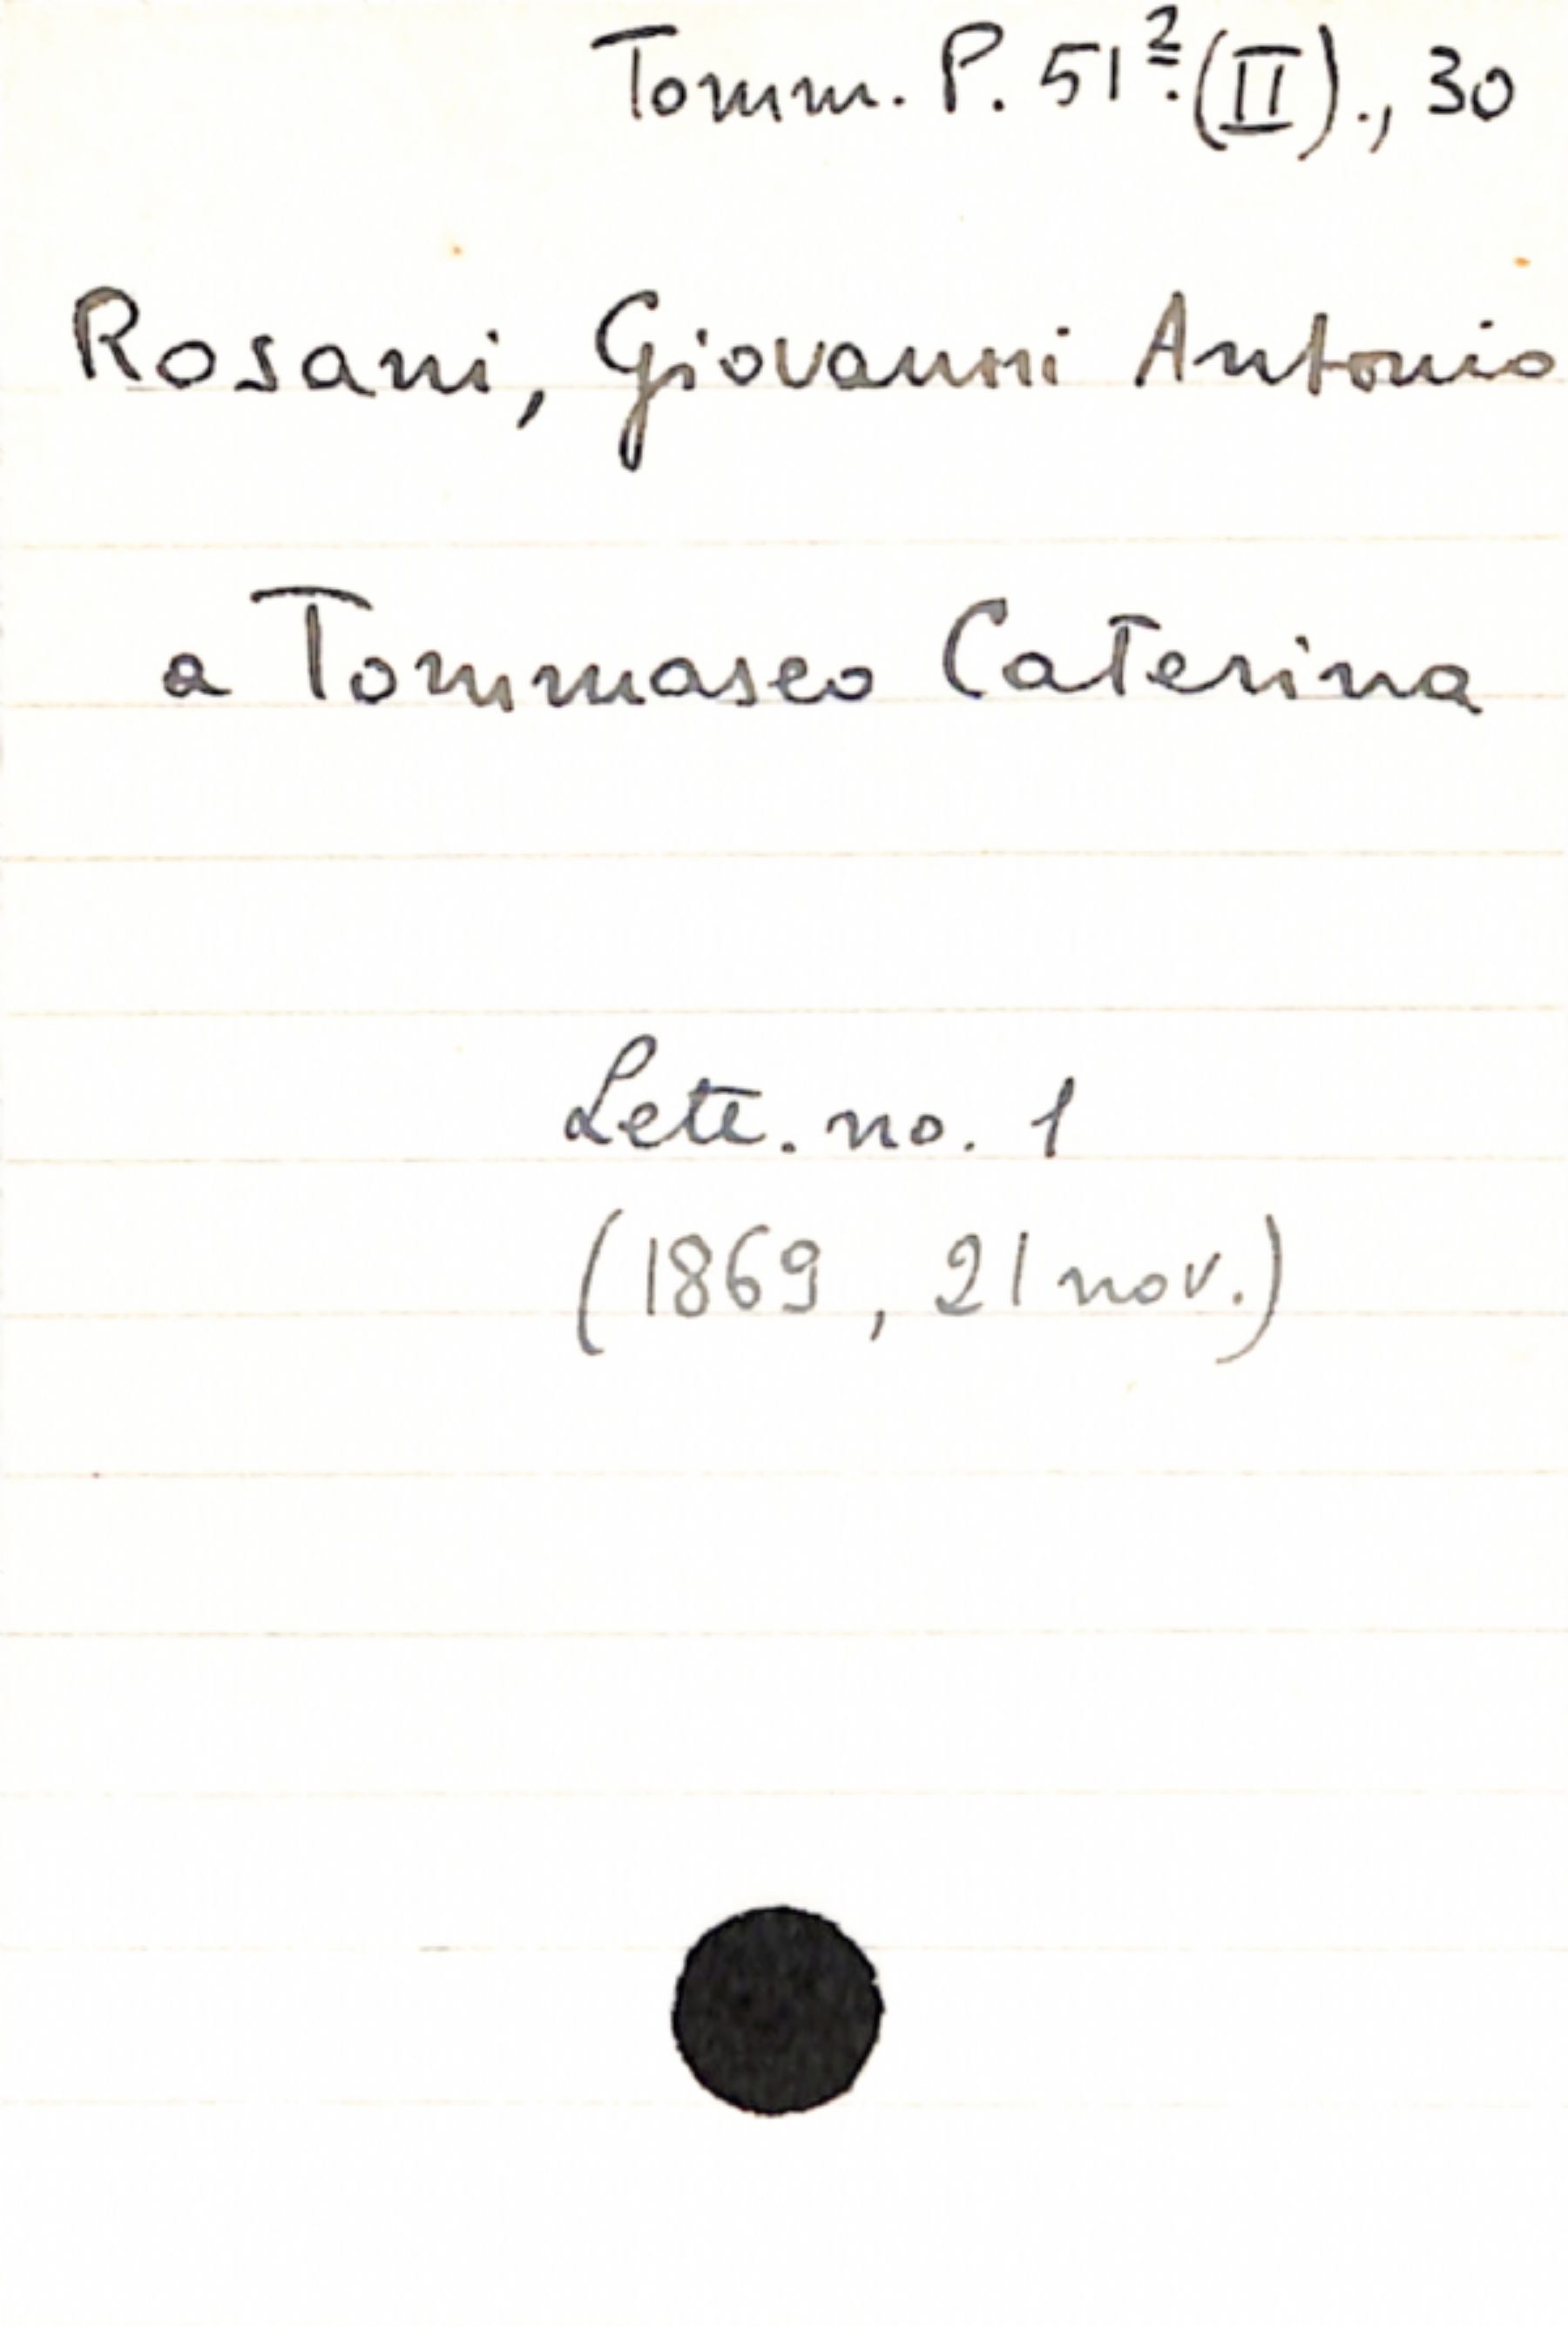 Tomm. P. 51². (II)., 30
Rosani, Giovanni Antonio
a Tommaseo Caterina
Lett. no. 1
(1869, 21 nov.)